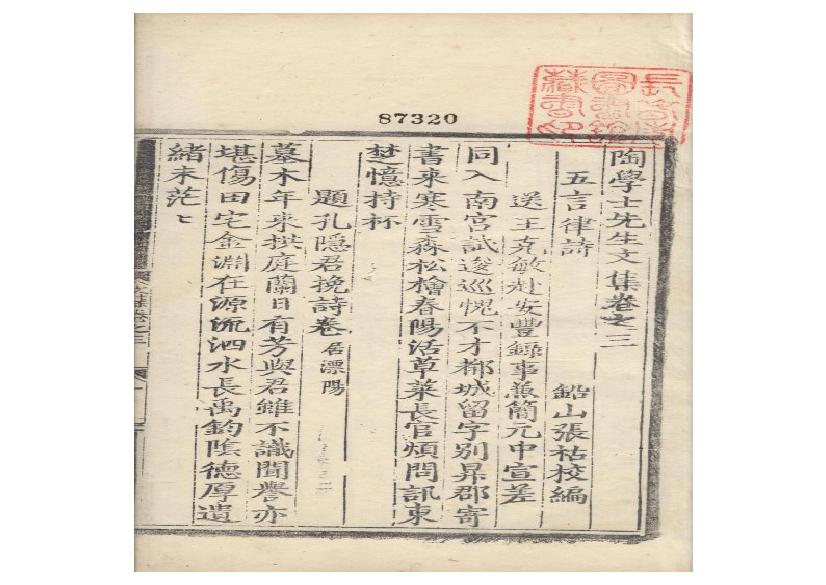 藏書印
87320
陶學士先生文集卷之三
五言律詩 鉛山張祐校編
送王克敏赴安豐錄事蒹簡元中宣差
同入南宮試逡巡愧不才都城留字別昇郡寄
書來寒雪森松檜春陽活草萊長官煩問訊東
楚憶持杯
題孔隱君挽詩卷 居溧陽
墓木年來拱庭蘭日有芳與君雖不識聞譽亦
堪傷田宅金淵在源流泗水長禹鈞陰德厚遺
緒未茫〻